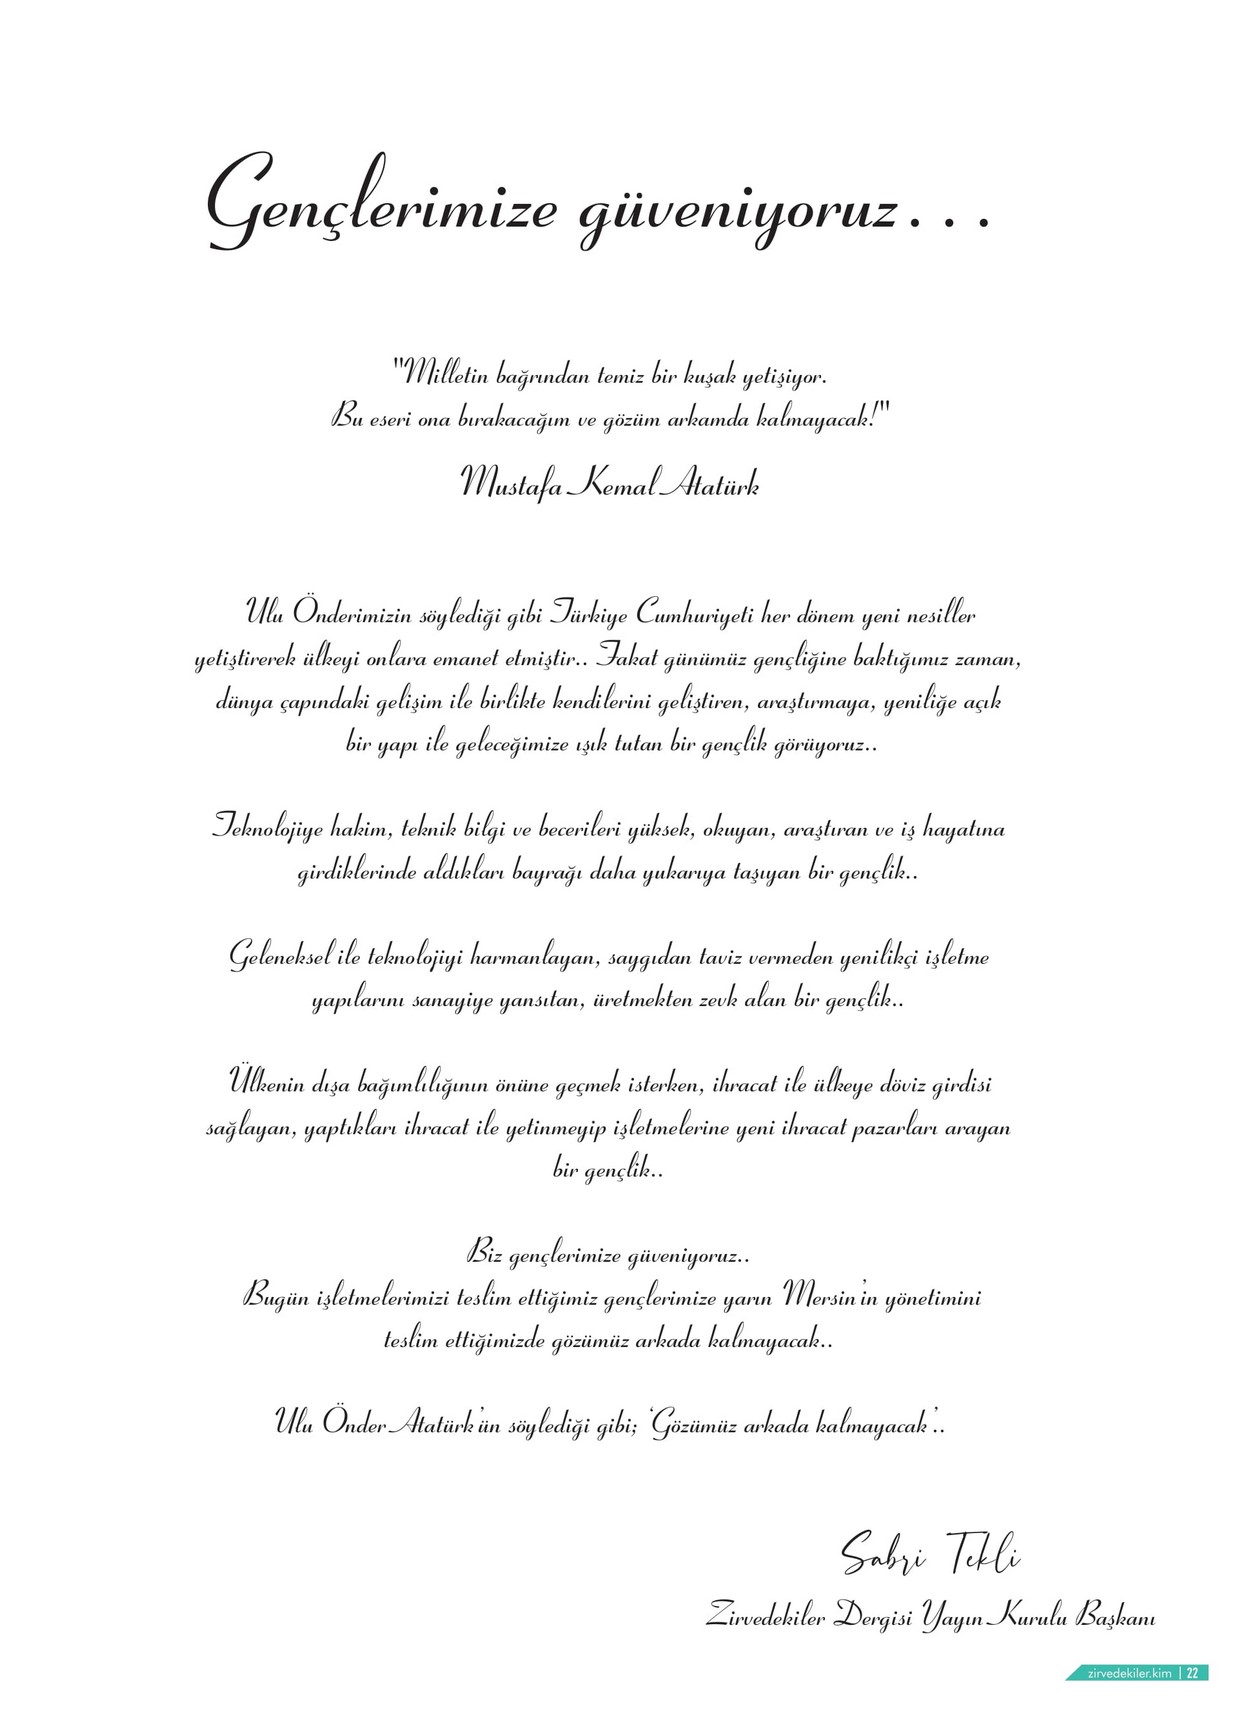 Gençlerimize güveniyoruz...
"Milletin bağrından temiz bir kuşak yetişiyor.
Bu eseri ona bırakacağım ve gözüm arkamda kalmayacak!"
Mustafa Kemal Atatürk
Ulu Önderimizin söylediği gibi Türkiye Cumhuriyeti her dönem yeni nesiller
yetiştirerek ülkeyi onlara emanet etmiştir.. Fakat günümüz gençliğine baktığımız zaman,
dünya çapındaki gelişim ile birlikte kendilerini geliştiren, araştırmaya, yeniliğe açık
bir yapı ile geleceğimize ışık tutan bir gençlik görüyoruz..
Teknolojiye hakim, teknik bilgi ve becerileri yüksek, okuyan, araştıran ve iş hayatına
girdiklerinde aldıkları bayrağı daha yukarıya taşıyan bir gençlik..
Geleneksel ile teknolojiyi harmanlayan, saygıdan taviz vermeden yenilikçi işletme
yapılarını sanayiye yansıtan, üretmekten zevk alan bir gençlik..
Ülkenin dışa bağımlılığının önüne geçmek isterken, ihracat ile ülkeye döviz girdisi
sağlayan, yaptıkları ihracat ile yetinmeyip işletmelerine yeni ihracat pazarları arayan
bir gençlik..
Biz gençlerimize güveniyoruz..
Bugün işletmelerimizi teslim ettiğimiz gençlerimize yarın Mersin'in yönetimini
teslim ettiğimizde gözümüz arkada kalmayacak..
Ulu Önder Atatürk'ün söylediği gibi; 'Gözümüz arkada kalmayacak'..
Sabri Tekli
Zirvedekiler Dergisi Yayın Kurulu Başkanı
zirvedekiler.kim | 22